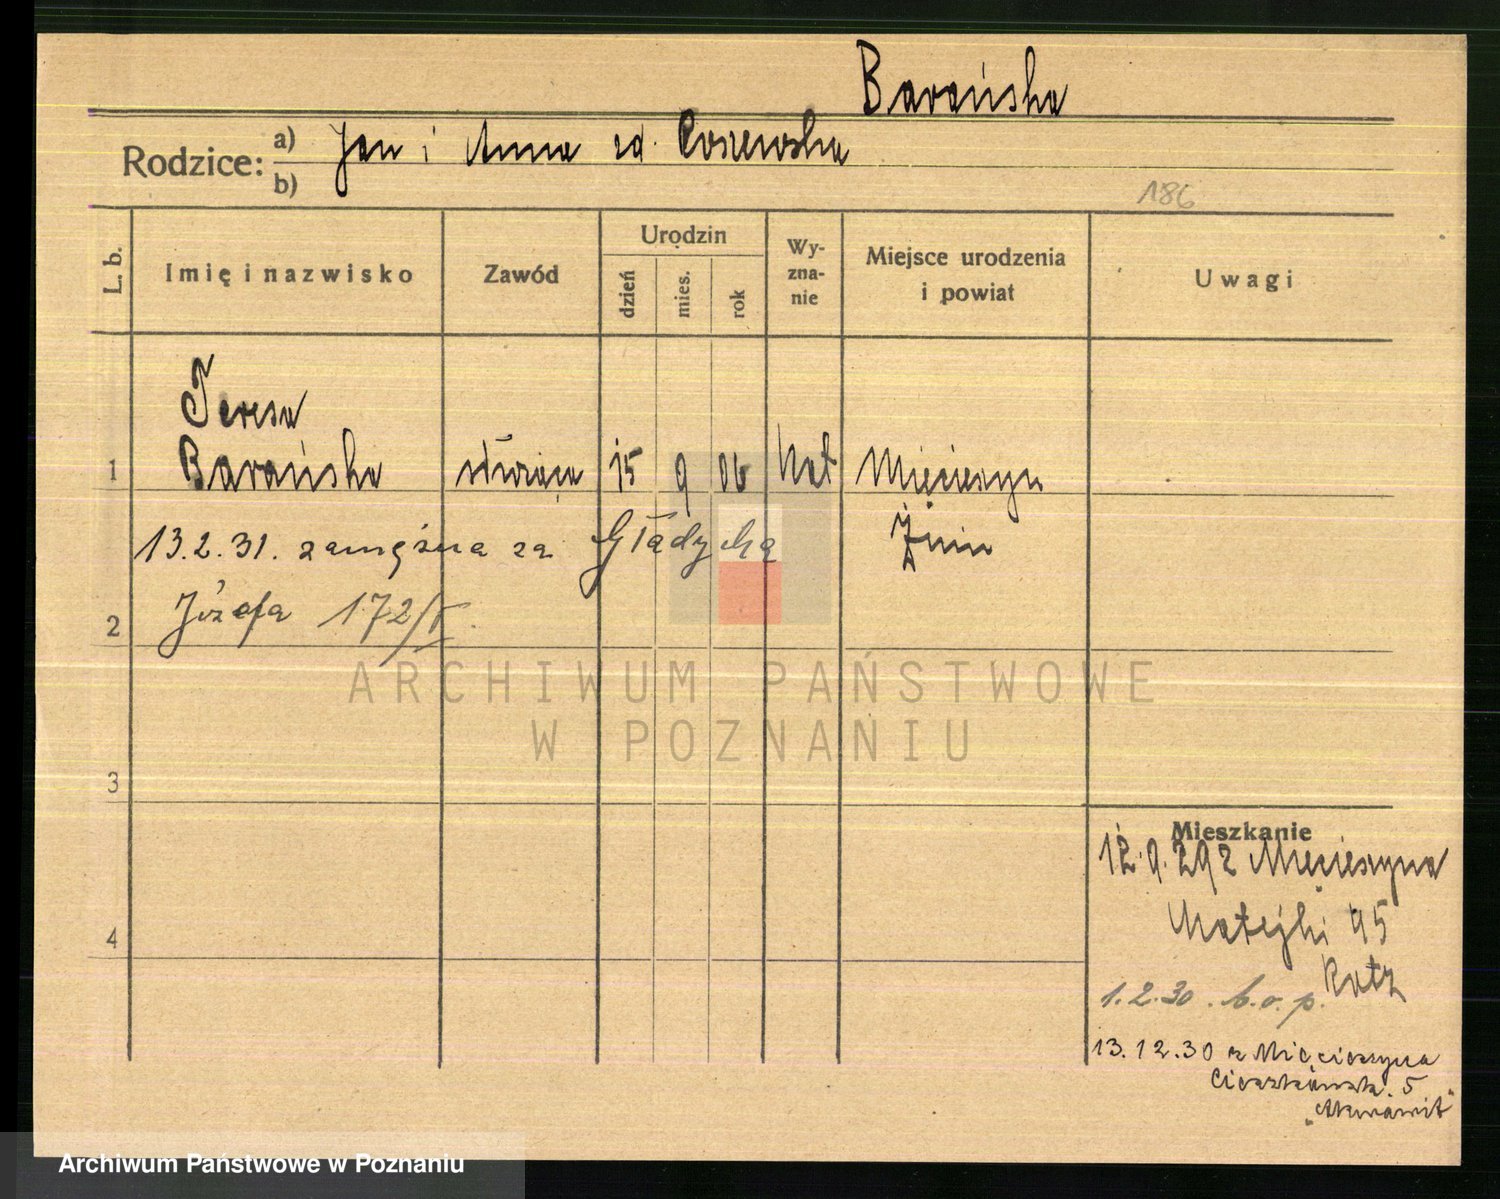 Barańska
Rodzice: a) Jan i Anna zd. Koszewska
b)
186
L. b. Imię i nazwisko Zawód Urodzin dzień mies. rok Wyznanie Miejsce urodzenia i powiat Uwagi
Teresa
1 Barańska służąca 15 9 06 kat Mięcierzyn
13.2.31. zamężna za Gładycką Żnin
2 Józefa 172/V.
ARCHIWUM PAŃSTWOWE
W POZNANIU
3
Mieszkanie
12.9.29 z Mięcierzyna
4 Matejki 45
Ratz
1.2.30. b.o.p.
13.12.30 z Mięcierzyna
5
"Akwawit"
Archiwum Państwowe w Poznaniu